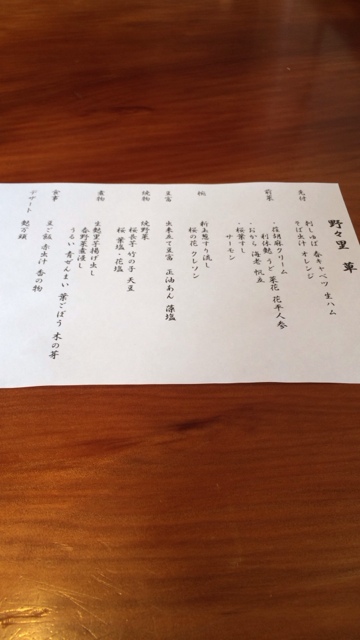 野々里 草
先付
刺しゅば 春キャベツ 生ハム
そば虫汁 オレンジ
前菜
・荏胡麻クリーム
利休麩 うど 菜花 花平人参
・おから 海老 帆立
・桜葉すし
サーモン
椀
新玉葱すり流し
桜の花 クレソン
豆富
出来立て豆富 正油あん 藻塩
焼物
焼野菜
桜長芋 竹の子 天豆
桜葉塩・花塩
煮物
生麩里芋揚げ出し
春野菜煮浸し
うるい 青ぜんまい 葉ごぼう 木の芽
食事
豆ご飯 赤出汁 香の物
デザート
麩万頭